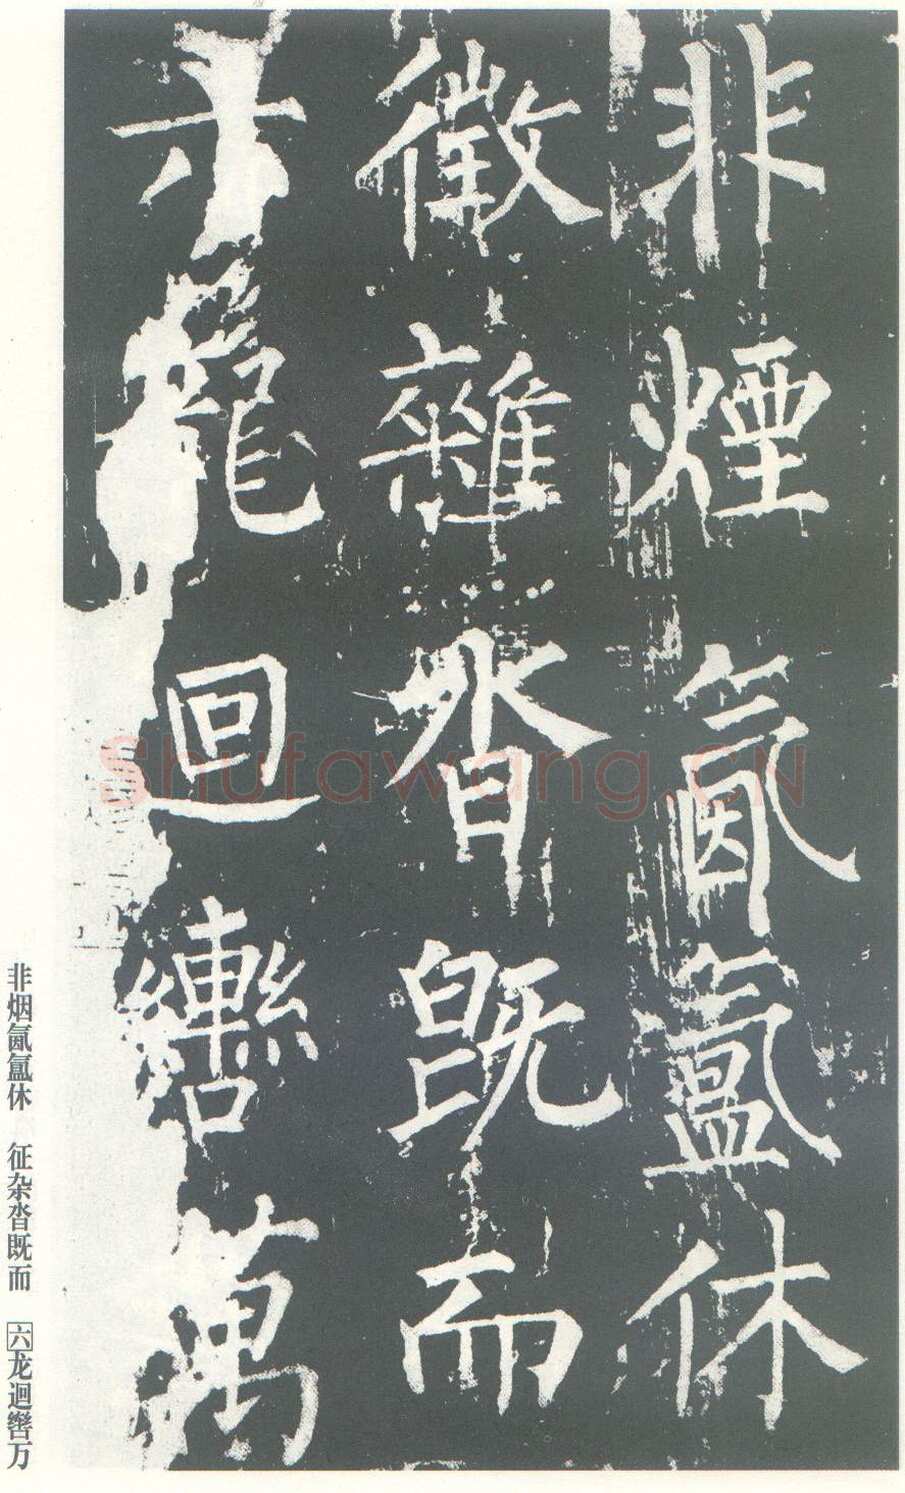 非煙氤氳休
徵雜沓既而
六龍迴轡萬
非烟氤氲休 征杂沓既而 六龙迴辔万
Shufawang.CN